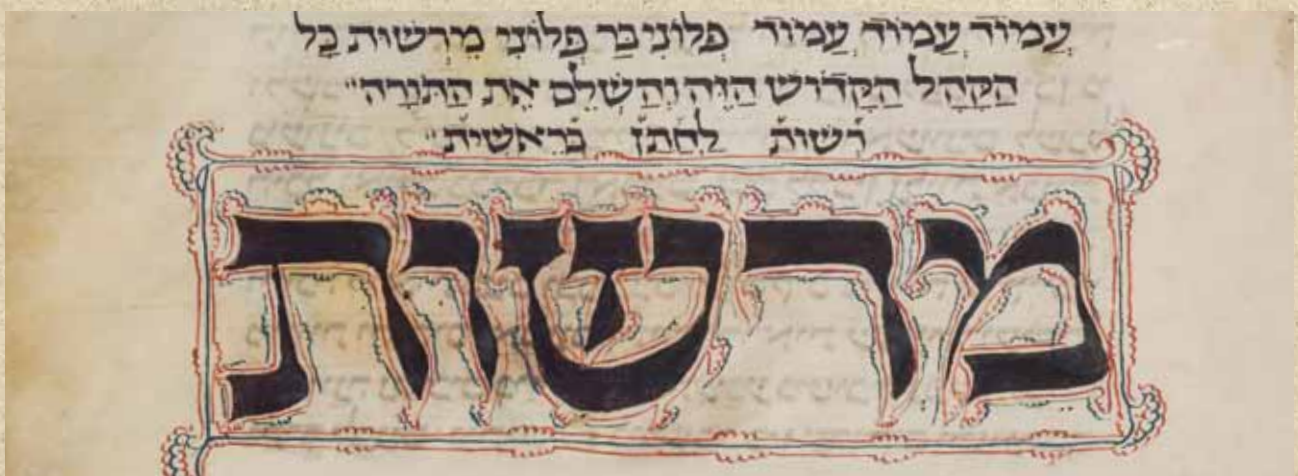 עֲמוֹד עֲמוֹד עֲמוֹד פְּלוֹנִי בַּר פְּלוֹנִי מֵרְשׁוּת כָּל
הַקָּהָל הַקָּדוֹשׁ הַזֶּה וְהַשְׁלֵם אֶת הַתּוֹרָה״
רְשׁוּת לַחֲתַן בְּרֵאשִׁית״
מרשות